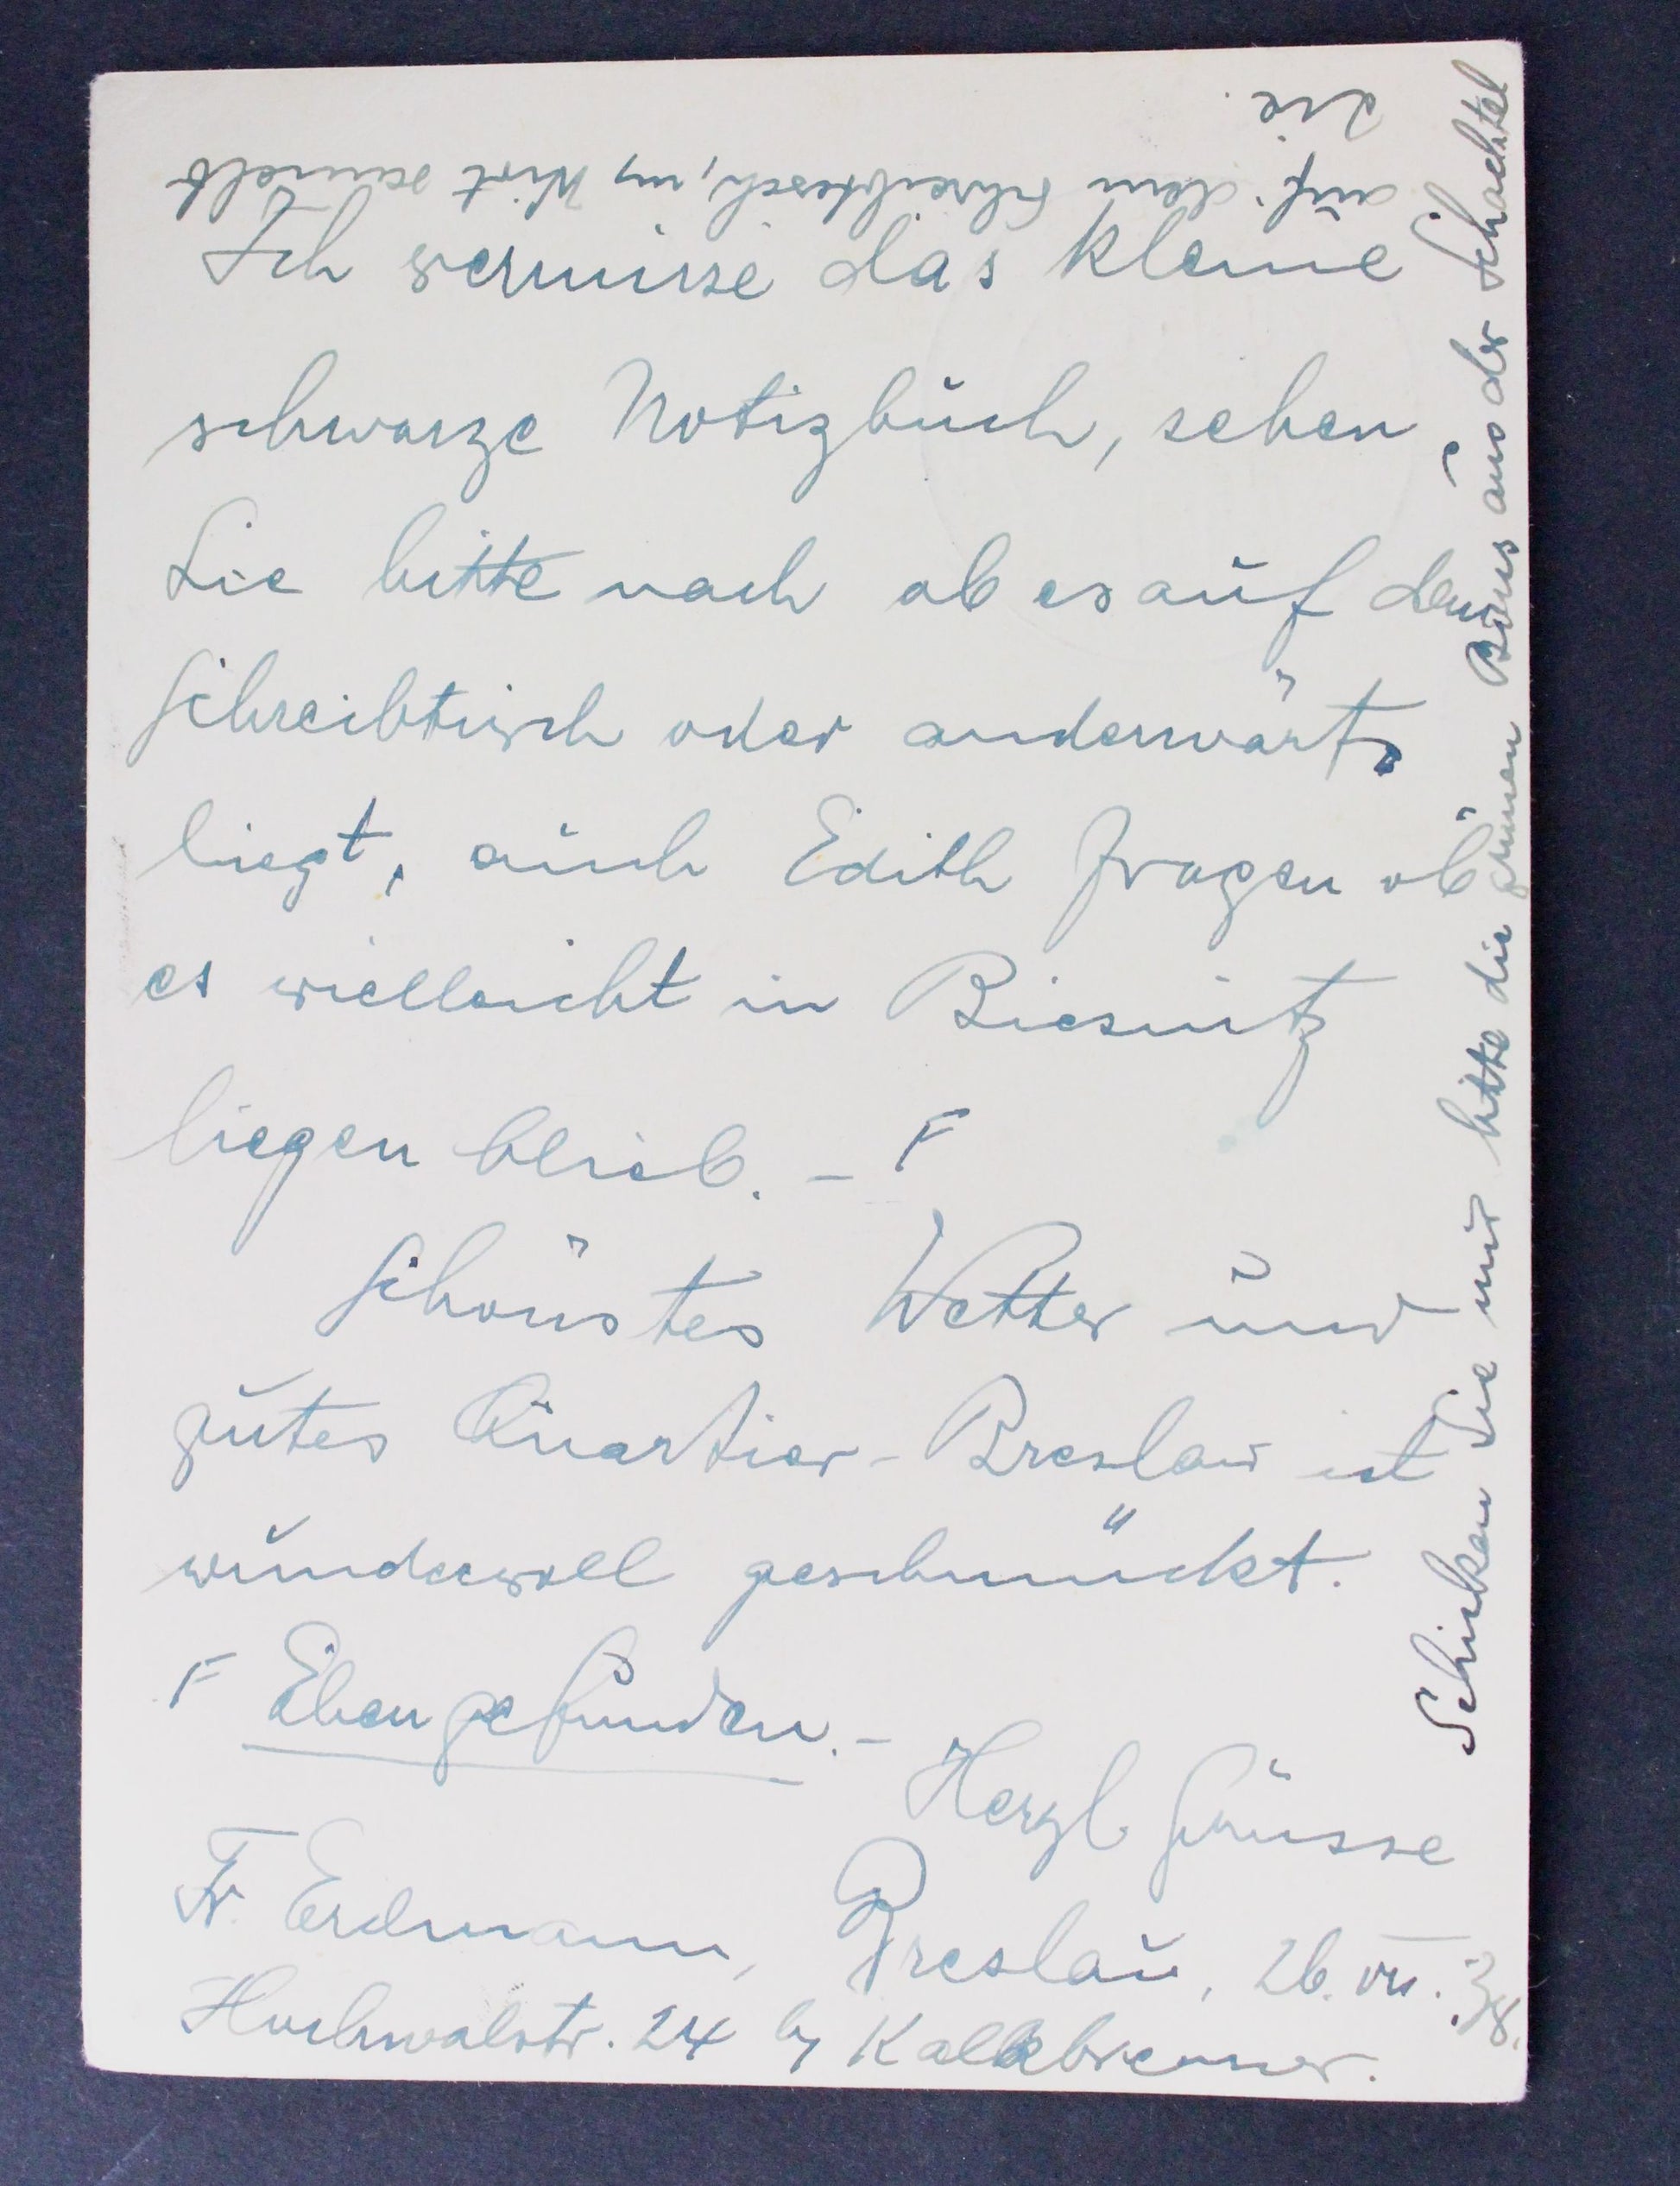 Ich vermisse das kleine
schwarze Notizbuch, sehen
Sie bitte nach ob es auf dem
Schreibtisch oder anderwärts
liegt, auch Edith fragen ob
es vielleicht in Biesnitz
liegen blieb. - F
Schönstes Wetter und
gutes Quartier - Breslau ist
wundervoll geschmückt.
F Eben gefunden. -
Herzl. Grüsse
Fr. Erdmann, Breslau, 26. VII. 38.
Hochwalstr. 24 b/ Kalkbrenner.
Schicken Sie mir bitte die grünen Bons aus der Schachtel
auf dem Schreibtisch, m/ Wirt sammelt
die.